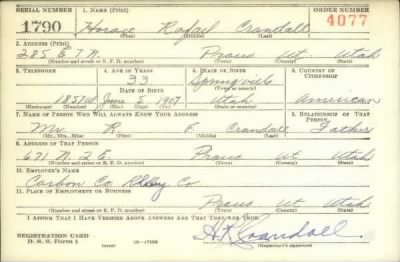 SERIAL NUMBER 1. NAME (Print) ORDER NUMBER
1790 Horace Rafael Crandall 4077
(First) (Middle) (Last)
2. ADDRESS (Print)
285 E 7 N. Provo Ut Utah
(Number and street or R. F. D. number) (Town) (County) (State)
3. TELEPHONE 4. AGE IN YEARS 5. PLACE OF BIRTH 6. COUNTRY OF CITIZENSHIP
33 Springville
DATE OF BIRTH (Town or county)
1857W June 5, 1907 Utah American
(Exchange) (Number) (Mo.) (Day) (Yr.) (State or country)
7. NAME OF PERSON WHO WILL ALWAYS KNOW YOUR ADDRESS 8. RELATIONSHIP OF THAT PERSON
Mr. R F. Crandall Father
(Mr., Mrs., Miss) (First) (Middle) (Last)
9. ADDRESS OF THAT PERSON
671 N. 2 E. Provo Ut Utah
(Number and street or R. F. D. number) (Town) (County) (State)
10. EMPLOYER'S NAME
Carbon Co. Co
11. PLACE OF EMPLOYMENT OR BUSINESS
Provo Ut Utah
(Number and street or R. F. D. number) (Town) (County) (State)
I AFFIRM THAT I HAVE VERIFIED ABOVE ANSWERS AND THAT THEY ARE TRUE.
REGISTRATION CARD
D. S. S. Form 1 H. R. Crandall
(Registrant's signature)